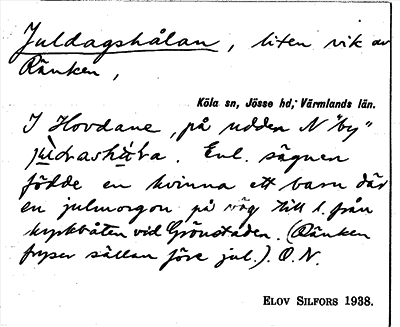 Juldagshålan, liten vik av
Ränken,
Köla sn, Jösse hd, Värmlands län.
I Hovdane, på udden N "by"
. Enl. sägnen
födde en kvinna ett barn där
en julmorgon på väg till l. från
kyrkbåten vid Grönstaden. (Ränken
fryser sällan före jul.). O.N.
ELOV SILFORS 1938.